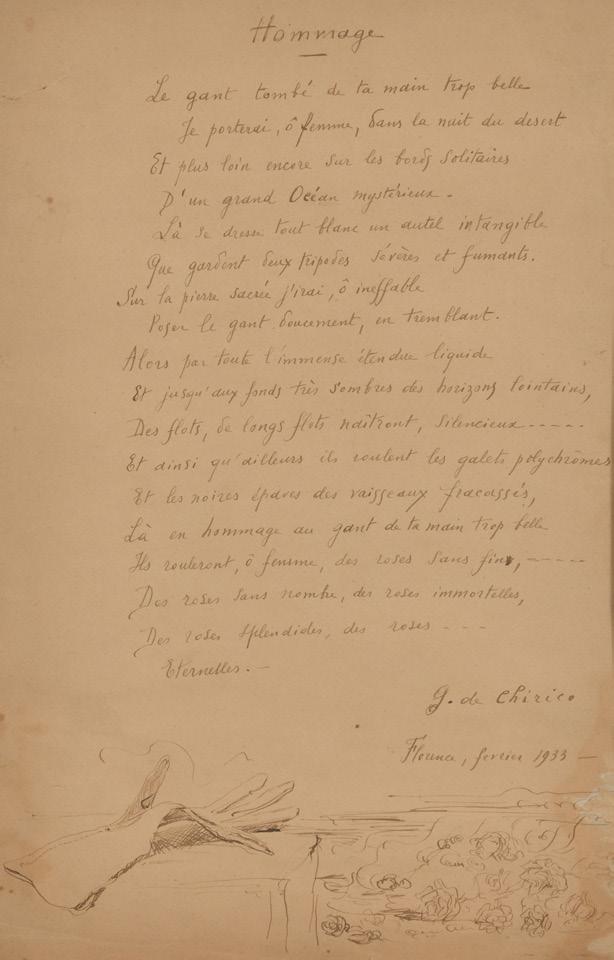 Hommage
Le gant tombé de ta main trop belle
Je porterai, ô femme, dans la nuit du desert
Et plus loin encore sur les bords solitaires
D'un grand Océan mystérieux.
Là se dresse tout blanc un autel intangible
Que gardent deux tripodes sévères et fumants.
Sur la pierre sacrée j'irai, ô ineffable
Poser le gant doucement, en tremblant.
Alors par toute l'immense étendue liquide
Et jusqu'aux fonds très sombres des horizons lointains,
Des flots, de longs flots naîtront, silencieux-----
Et ainsi qu'ailleurs ils roulent les galets polychrômes
Et les noires épaves des vaisseaux fracassés,
Là en hommage au gant de ta main trop belle
Ils rouleront, ô femme, des roses sans fin, ----
Des roses sans nombre, des roses immortelles,
Des roses splendides, des roses ---
Eternelles.-
G. de Chirico
Florence, fevrier 1933 -